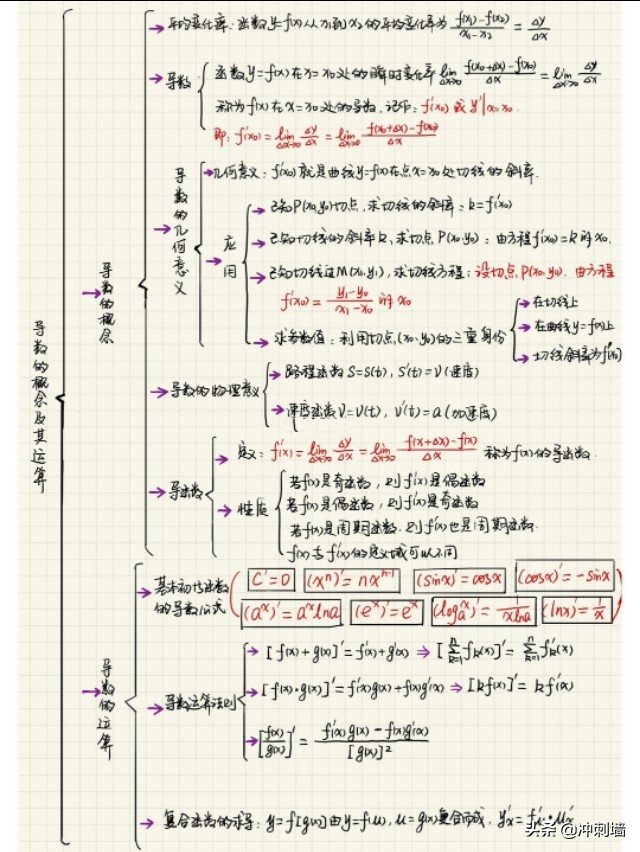 导数的概念及其运算
导数的概念
平均变化率：函数y=f(x)从x1到x2的平均变化率为 f(x1)-f(x2)/x1-x2 = Δy/Δx
导数
函数y=f(x)在x=x0处的瞬时变化率 lim Δx→0 f(x0+Δx)-f(x0)/Δx = lim Δx→0 Δy/Δx
称为f(x)在x=x0处的导数，记作：f'(x0)或y'|x=x0.
即：f'(x0)=lim Δx→0 Δy/Δx = lim Δx→0 f(x0+Δx)-f(x0)/Δx
导数的几何意义
几何意义：f'(x0)就是曲线y=f(x)在点x=x0处切线的斜率.
应用
已知P(x0,y0)切点，求切线的斜率：k=f'(x0)
已知切线的斜率k，求切点P(x0,y0)：由方程f'(x0)=k的x0.
已知切线过M(x1,y1)，求切线方程：设切点P(x0,y0)，由方程
f'(x0)= y1-y0/x1-x0 的x0
求参数值：利用切点(x0,y0)的三重身份
在切线上
在曲线y=f(x)上
切线斜率为f'(x0)
导数的物理意义
路程函数S=S(t)，S'(t)=V(速度)
速度函数V=V(t)，V'(t)=a(加速度)
导函数
定义：f'(x)=lim Δx→0 Δy/Δx = lim Δx→0 f(x+Δx)-f(x)/Δx 称为f(x)的导函数.
性质
若f(x)是奇函数，则f'(x)是偶函数
若f(x)是偶函数，则f'(x)是奇函数
若f(x)是周期函数，则f'(x)也是周期函数.
f(x)与f'(x)的定义域可以不同
导数的运算
基本初等函数
的导数公式
C'=0 (xⁿ)'=nxⁿ⁻¹ (sinx)'=cosx (cosx)'=-sinx
(aˣ)'=aˣlna (eˣ)'=eˣ (logₐx)'=1/xlna (lnx)'=1/x
导数运算法则
[f(x)+g(x)]'=f'(x)+g'(x) ⇒ [∑ n k=1 fk(x)]'=∑ n k=1 f'k(x)
[f(x)·g(x)]'=f'(x)g(x)+f(x)g'(x) ⇒ [kf(x)]'=kf'(x)
[f(x)/g(x)]' = f'(x)g(x)-f(x)g'(x)/[g(x)]²
复合函数的求导：y=f[g(x)]由y=f(u)，u=g(x)复合而成，y'x=f'u·u'x
头条 @冲刺墙